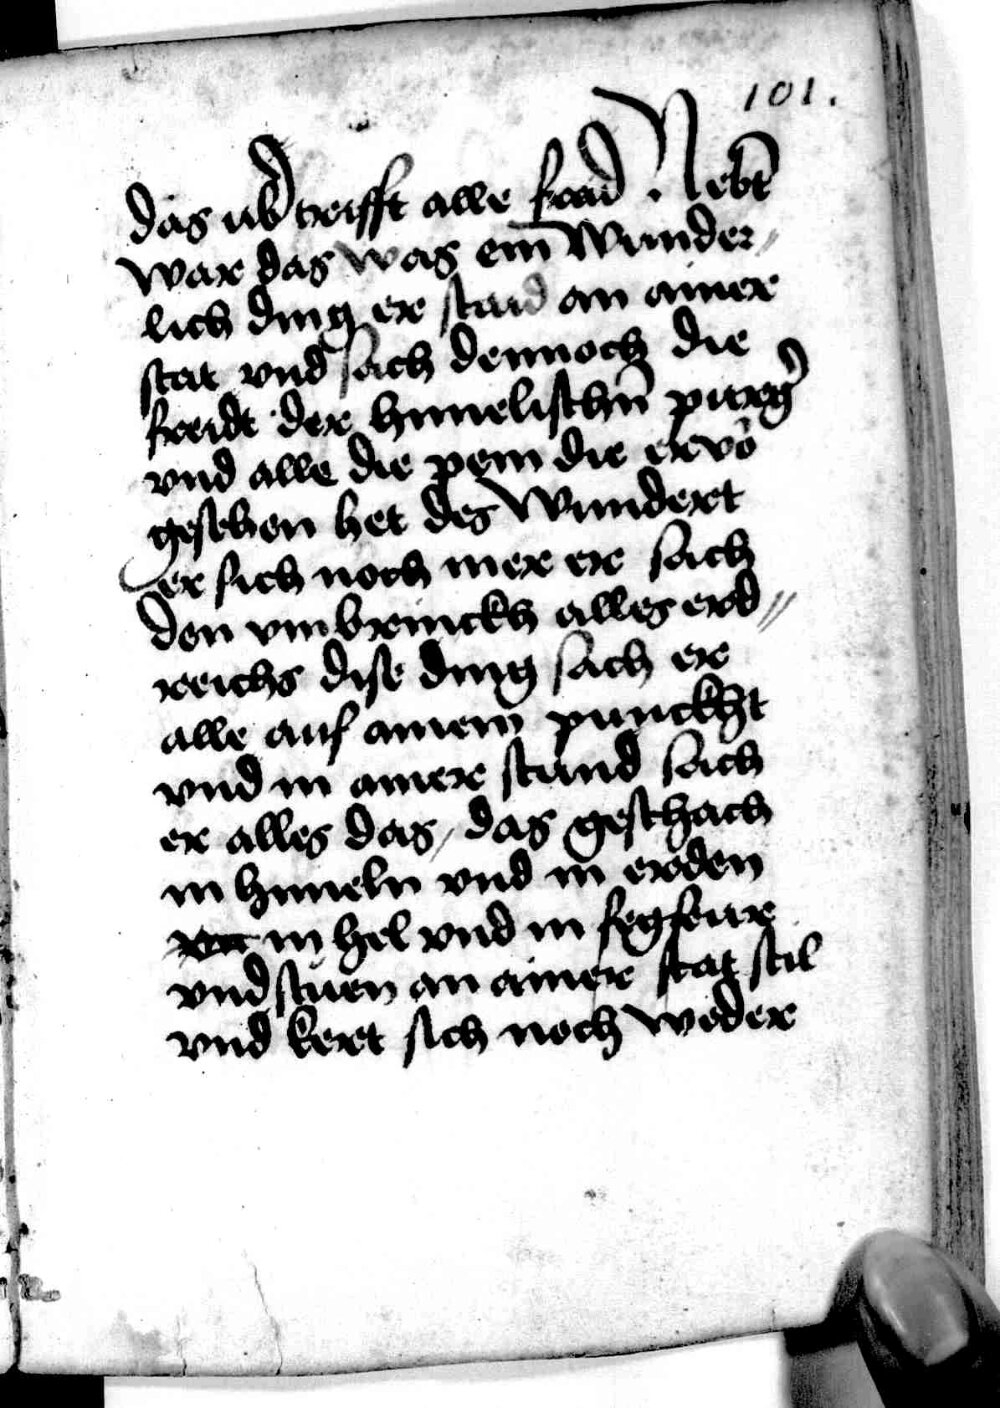 101.
das üb trifft alle fraid Nebt̄
war das was ein wunder
lich ding er staid an ainer
stat vnd sach dennoch die
freidt der himelischn̄ purg̉
vnd alle die pein die er vō
gesehen het des wundert
er sich noch mer er sach
den vmbrinckh alles erd„
reichs dise ding sach er
alle auf ainem punckht
vnd in ainer stund sach
er alles das, das geschach
in himeln vnd in erden
in hel vnd in fegfeur
vnd stuen an ainer stat stil
vnd kert sich noch weder